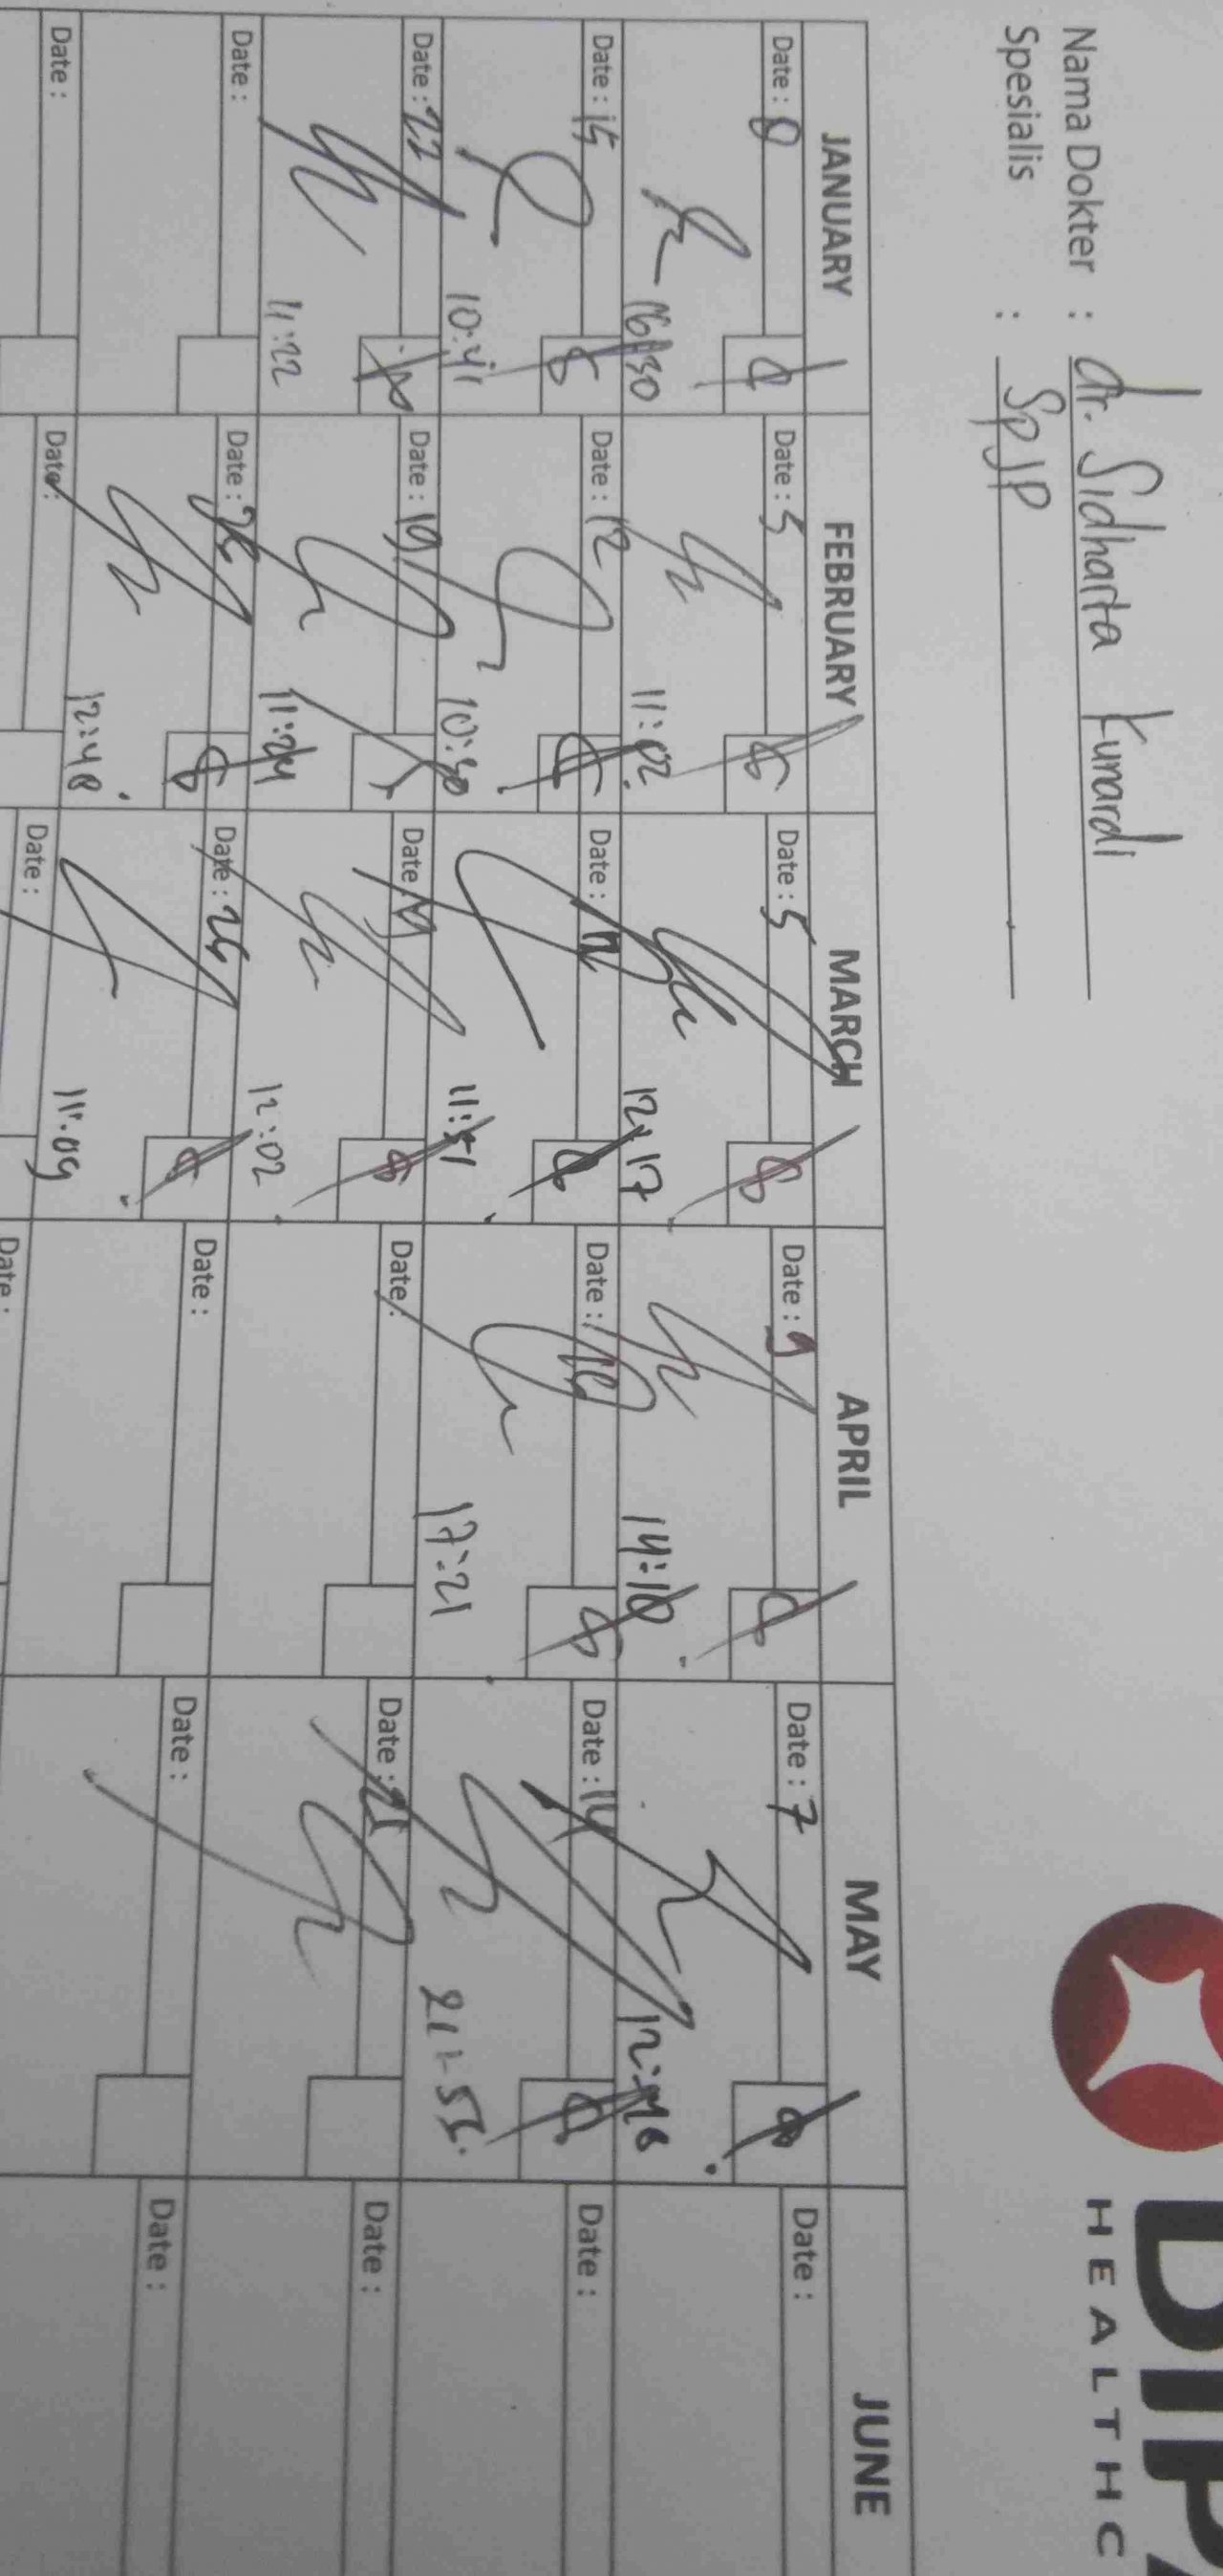 DIPA
HEALTHC
Nama Dokter : dr. Sidharta Kunardi
Spesialis : SpJP
JANUARY FEBRUARY MARCH APRIL MAY JUNE
Date : 8 Date : 5 Date : 5 Date : 9 Date : 7 Date :
16:30 11:02 12:17 14:10
Date : 15 Date : 12 Date : 12 Date : 16 Date : 14 Date :
10:41 10:30 11:51 17:21 21:55
Date : 22 Date : 19 Date : 19 Date : Date : 21 Date :
11:22 11:24 12:02
Date : Date : 26 Date : 25 Date : Date : Date :
12:48 11:09
Date : Date : Date : Date :